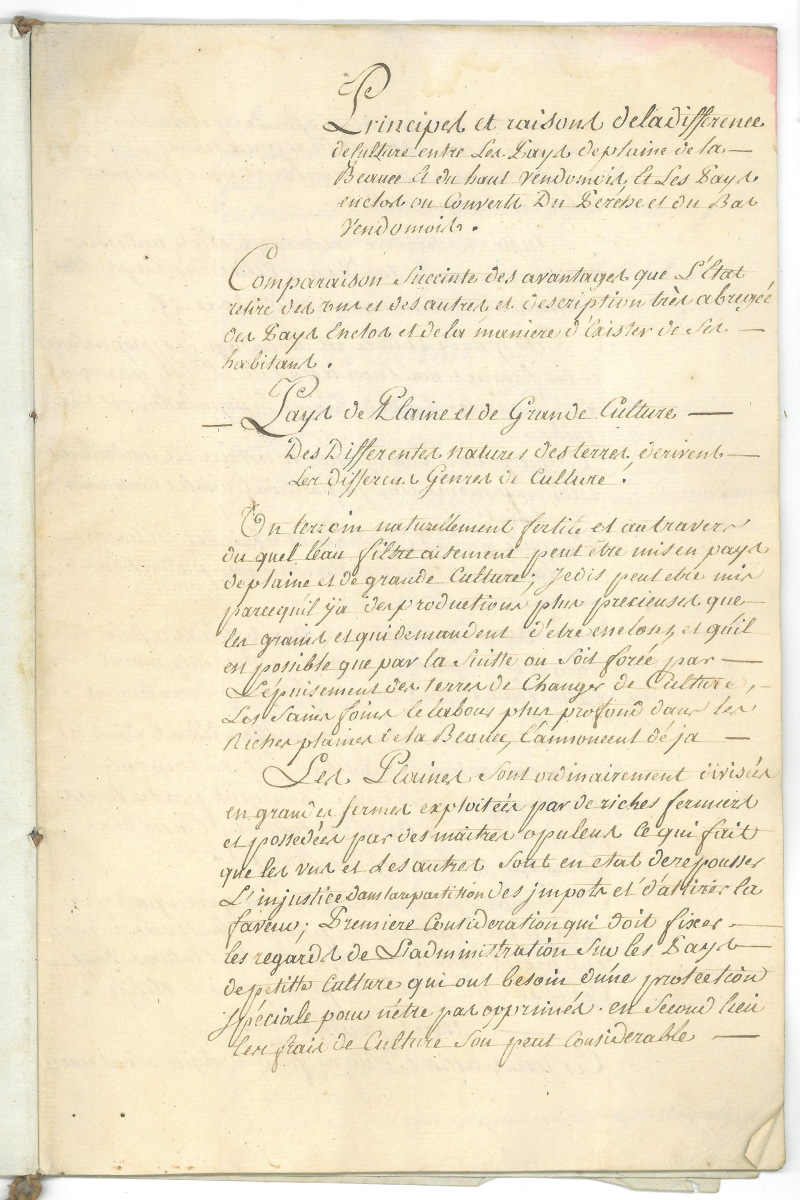 Principes et raisons de la difference
de Culture entre Les Pays de plaine de la —
Beauce et du haut Vendomois, Et Les Pays
enclos ou Couverts Du Perche et du Bas
Vendomois.
Comparaison Succinte des avantages que L'État
retire des uns et des autres et description très abregée
des Pays Enclos et de la maniere d'Exister de Ses —
habitans.
— Pays de Plaine et de Grande Culture —
Des Differentes natures des terres, derivent —
Les differens Genres de Culture.
Un terrein naturellement fertile et au travers
du quel l'eau filtre aisement peut être mis en pays
de plaine et de grande Culture; Je dis peut etre mis
parcequ'il ÿ a des productions plus precieuses que —
les grains et qui demandent d'être encloses et qu'il
en possible que par la Suitte on Soit forcé par —
L'épuisement des terres de Changer de Culture, —
Les Sains foins le labour plus profond dans les
Riches plaines de la Beauce, l'annoncent deja —
Les Plaines Sont ordinairement divisées
en grandes fermes exploitées par de riches fermiers
et possedées par des maitres opulens ce qui fait
que les uns et Les autres Sont en etat de repousser
L'injustice dans la repartition des impots et d'attirer la
faveur; Premiere Consideration qui doit fixer —
les regards de L'administration Sur les Pays —
de petitte Culture qui ont besoin d'une protection
Spéciale pour n'être pas opprimés. en Second lieu
les frais de Culture Son peut Considerable —